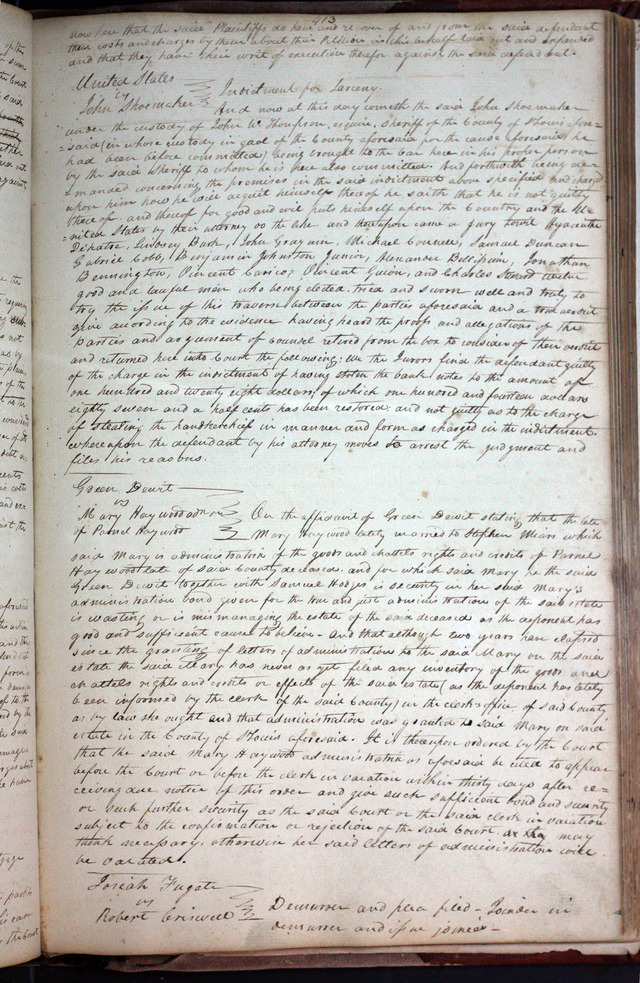 413
now here that the said Plaintiffs do have and recover of and from the said defendant
their costs and charges by them about their Petition in this behalf laid out and expended
and that they have their writ of execution therefor against the said defendant.
United States
vs
John Shoemaker
Indictment for Larceny.
And now at this day cometh the said John Shoemaker
under the custody of John W. Thompson, esquire, Sheriff of the County of St Louis afore=
said (in whose custody in gaol of the County aforesaid for the cause aforesaid he
had been before committed) being brought to the bar here in his proper person
by the said Sheriff to whom he is here also committed. And forthwith being de=
=manded concerning the premises in the said indictment above specified and charged
upon him how he will acquit himself thereof he saith that he is not guilty
thereof. and thereof for good and evil puts himself upon the Country and the U=
=nited States by their attorney do the like and thereupon came a jury towit Hyacinthe
Dehatre, Lindsey Burk, John Graham, Michael Connell, Samuel Duncan
Gabriel Cobb, Benjamin Johnston Junior, Alexander Bellissime, Jonathan
Bennington, Vincent Carrico, Vincent Guion, and Charles twelve
good and lawful men who being elected, tried and sworn well and truly to
try the issue of this traverse between the parties aforesaid and a true verdict
give according to the evidence having heard the proofs and allegations of the
parties and argument of counsel retired from the box to consider of their verdict
and returned here into Court the following: We the Jurors find the defendant guilty
of the charge in the indictment of having stolen the bank notes to the amount of
one hundred and twenty eight dollars, of which one hundred and fourteen dollars
eighty seven and a half cents has been restored, and not guilty as to the charge
of stealing the handkerchief in manner and form as charged in the indictment.
whereupon the defendant by his attorney moves to arrest the judgment and
files his reasons.
Green Dewit
vs
Mary Haywood admx
of Parnel Haywood
On the affidavit of Green Dewit stating that the late
Mary Haywood lately married to Stephen Mairs which
said Mary is administratrix of the goods and chattels rights and credits of Parnel
Haywood late of said County deceased. and for which said Mary he the said
Green Dewit together with Samuel Hodges is security in her said Mary's
administration bond given for the true and just administration of the said estate
is wasting or is mismanaging the estate of the said deceased as the deponent has
good and sufficient cause to believe. And that although two years have elapsed
since the granting of letters of administration to the said Mary on the said
estate the said Mary has never as yet filed any inventory of the goods and
chattels rights and credits or effects of the said estate (as the deponent has lately
been informed by the clerk of the said County) in the clerks office of said County
as by law she ought and that administration was granted to said Mary on said
estate in the County of St Louis aforesaid. It is thereupon ordered by the Court
that the said Mary Haywood administratrix as aforesaid be cited to appear
before the Court or before the clerk in vacation within thirty days after re=
ceiving due notice of this order and give such sufficient bond and security
or such further security as the said Court or the said clerk in vacation
subject to the confirmation or rejection of the said Court. as they may
think necessary. otherwise her said letters of administration will
be vacated.
Josiah Fugate
vs
Robert Criswell
Demurrer and plea filed - Joinder in
demurrer and issue joined -